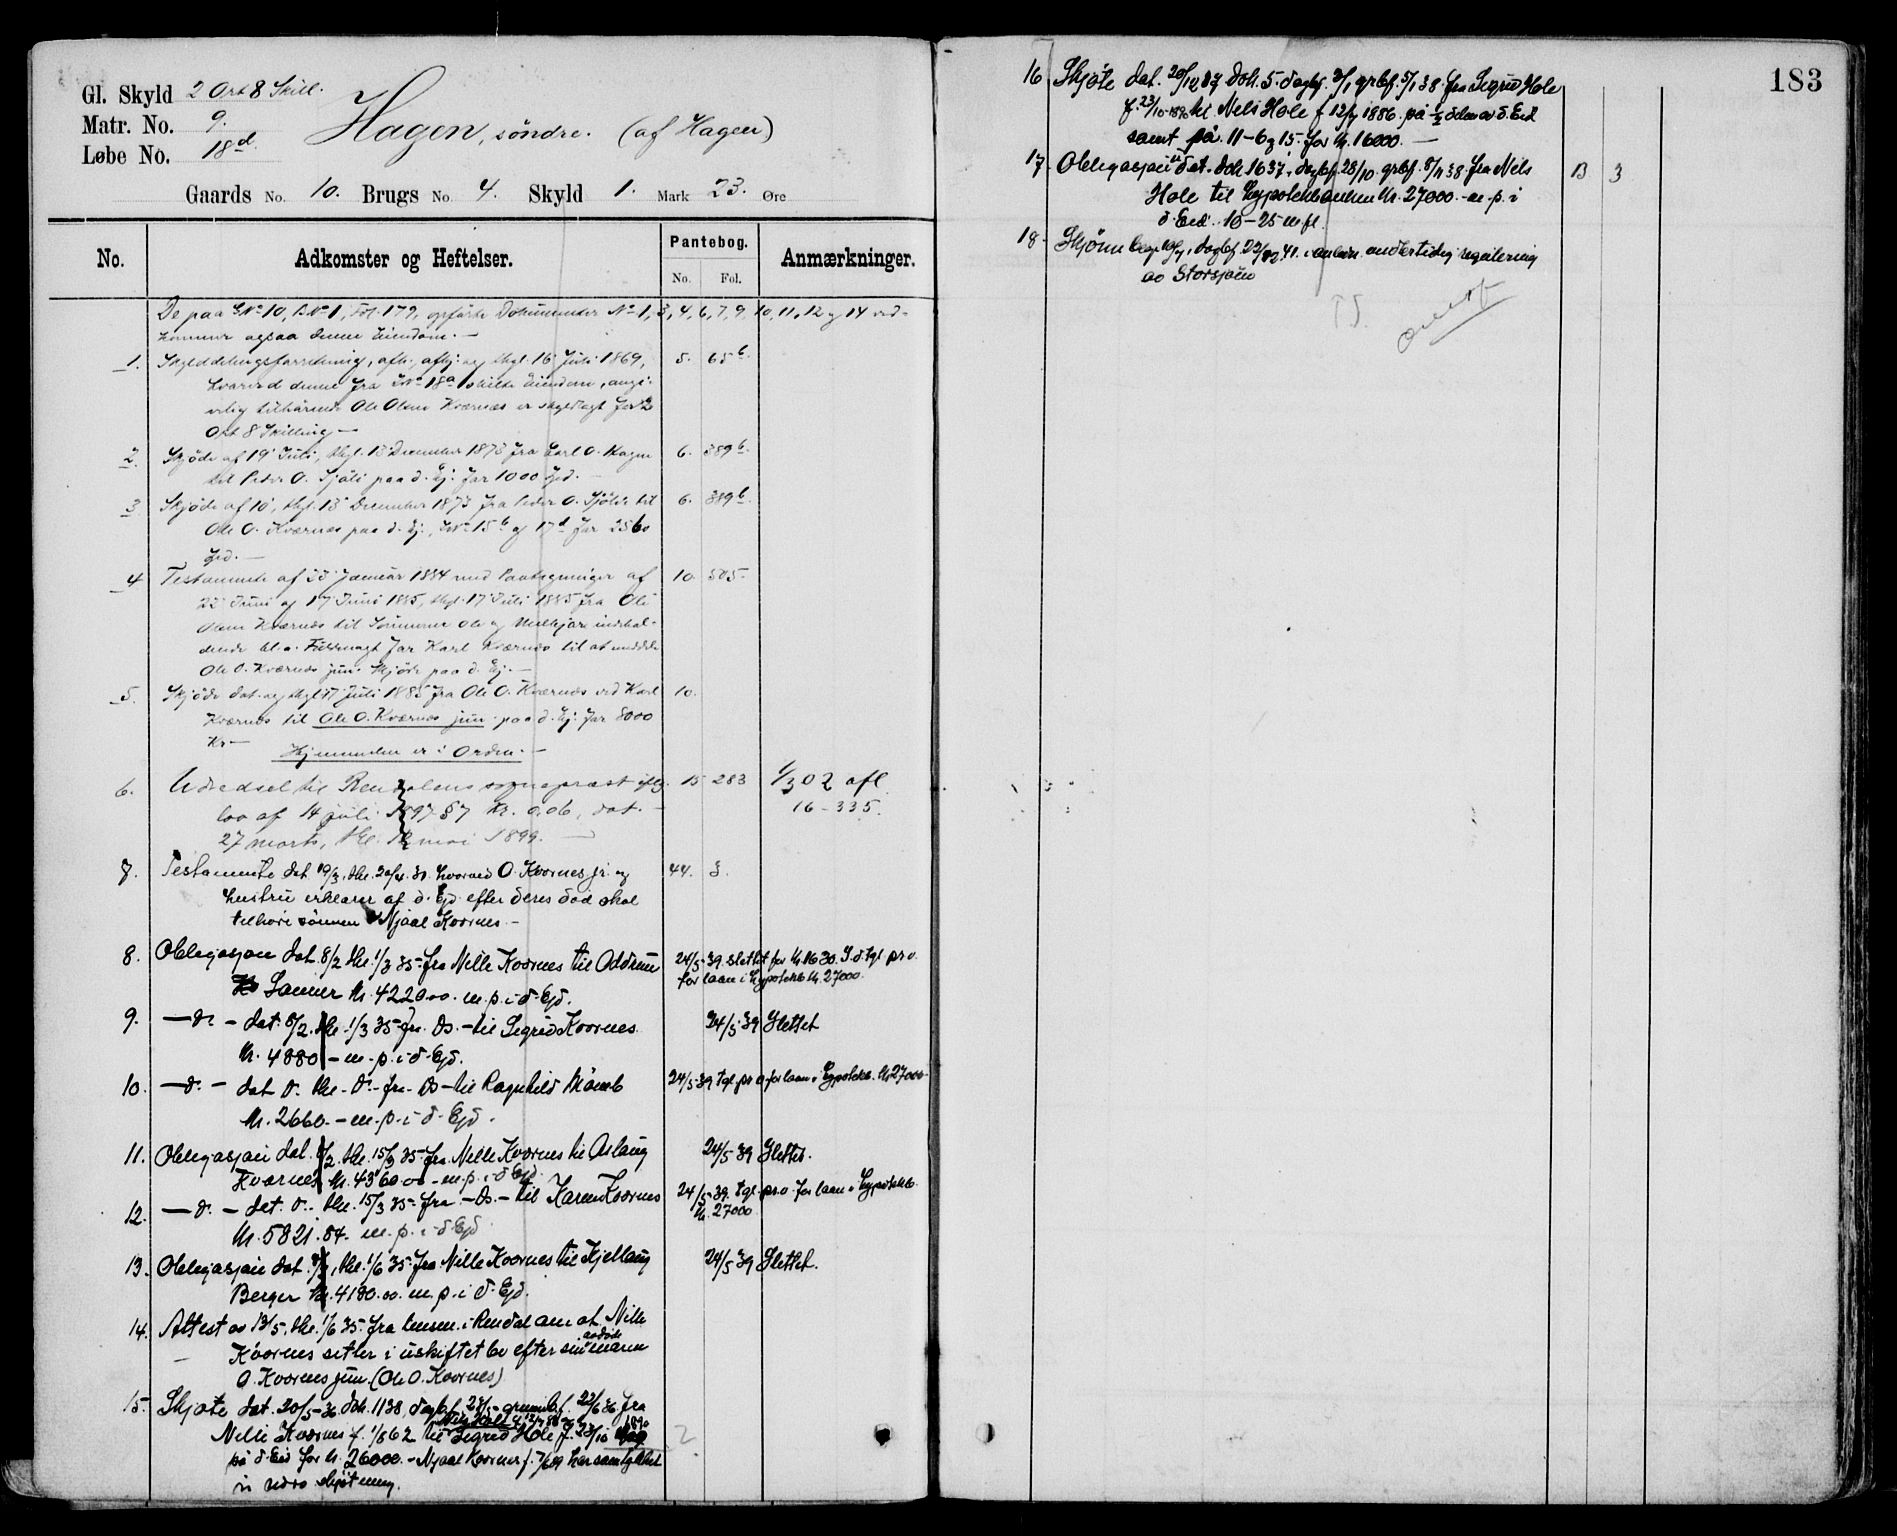 Gl. Skyld 2 Ort 8 Skill.
Matr. No. 9.
Løbe No. 18d.
Hagen, söndre. (af Hagen)
Gaards No. 10. Brugs No. 4. Skyld 1. Mark 23. Øre
No. Adkomster og Heftelser. Pantebog. No. Fol. Anmærkninger.
De paa GNo 10, BNo 1, Fol. 179, opførte Dokumenter No 1, 3, 4, 6, 7, 9, 10, 11, 12 og 14 ved-
kommer ogsaa denne Eiendom. —
1. Skylddelingsforretning, afh., afhj. og thgl. 16 Juli 1869, 5. 65b.
hvorved denne fra LNo 18a skilte Eiendom, angi-
velig tilhørende Ole Olsen Kværnæs er skyldlagt for 2
Ort 8 Skilling —
2. Skjöde af 19 Juli, thgl. 13 December 1873 fra Carl O. Hagen 6. 389b.
til Peder O. Sjöli paa d. Ej. for 1000 Spd. —
3. Skjöde af 10, thgl. 13 December 1873 fra Peder O. Sjöli til 6. 389b.
Ole O. Kværnes paa d. Ej., LNo 15b og 17d for 2560
Spd. —
4 Testamente af 23 Januar 1884 med Paategninger af 10. 505.
22 Juni og 17 Juni 1885, thgl. 17 Juli 1885 fra Ole
Olsen Kværnes til Sönnerne Ole og indehol-
dende bl. a. Fuldmagt for Karl Kværnes til at meddele
Ole O. Kværnes jun. Skjöde paa d. Ej. —
5. Skjöde dat. og thgl. 17 Juli 1885 fra Ole O. Kværnes ved Karl 10.
Kværnes til Ole O. Kværnes jun. paa d. Ej. for 8000
Kr —
Hjemmelen er i Orden. —
6. Udredsel til Rendalens sognepræst iflg. 15 283 1/3 02 afl.
lov af 14 juli 1897 § 7 Kr. 0.06, dat. — 16 - 335.
27 marts, thl. 12 mai 1899. —
7. Testamente dat. 19/3, thl. 20/4. 31. hvorved O. Kværnes jr. og 44. 3.
hustru erklærer af d. Ejd. efter deres död skal
tilhøre sønnen Njaal Kværnes. —
8. Obligasjon dat. 8/2 thl. 1/3 35 fra Nille Kværnes til Oddrun 24/5-39. slettet for kr. 1630. I. d. tgl. pr. o.
Sanner kr. 4220.00. m. p. i d. Ejd. for laan i Hypotekb. kr. 27000.
9. — d. — dat. 8/2. thl. 1/3 35 fra Ds. — til Sigrid Kværnes 24/5 39 Slettet
kr. 4880 — m. p. i d. Ejd.
10. — d. — dat. d. thl. — d. — fra — Ds — til Ragnhild Mömb 24/5-39 tgl. pr. o. for laan i Hypotekb. kr. 27000.
kr. 2660. — m. p. i d. Ejd.
11. Obligasjon dat. 8/2. thl. 15/3 35 fra Nille Kværnes til Aslaug 24/5 39 Slettet.
Kværnes kr. 4360.00 — m. p. i d. Ejd.
12. — d. — dat. d. thl. 15/3 35 — fra — Ds. — til Karen Kværnes 24/5-39. tgl. pr. o. for laan i Hypotekb.
kr. 5821.84 m. p. i d. Ejd. kr. 27000
13. Obligasjon dat. thl. 1/6 35 fra Nille Kværnes til Kjellaug 24/5 39 Slettet.
Berger kr. 4180.00. m. p. i d. Ejd.
14. Attest av 13/5, thl. 1/6 35 fra lensm. i Rendal om at Nille
Kværnes sitter i uskiftet bo efter sin avdöde mann
O. Kværnes jun. (Ole O. Kværnes)
15. Skjøte dat. 20/5-36. dok. 1138, dagbf. 23/5 - grunnbf. 22/6 36 fra
Nille Kværnes f. 1/8 62 til Sigrid Hole f. 23/10 1890
på d. Eid. for kr. 26000. — Njaal Kværnes f. 7/6 09 har samtykket
i skjøtning.
183
16 Skjøte dat. 20/12 37 dok. 5. dagbf. 3/1 grbf. 5/1 38. fra Sigrid Hole
f. 23/10-1890 til Nels Hole f. 12/7 1886. på ½ delen av d. Eid
samt på 11-6 og 15. for kr. 16000. —
17. Obligasjon dat. dok 1637, dagbf. 28/10 grbf. 8/11 38. fra Nels B 3
Hole til Hypotekbanken kr. 27000. — m. p. i
d. Eid. 10-25 m. fl.
18. Skjønn dagbf. 29/12 41. i anledn. midlertidig regulering
av Storsjøen